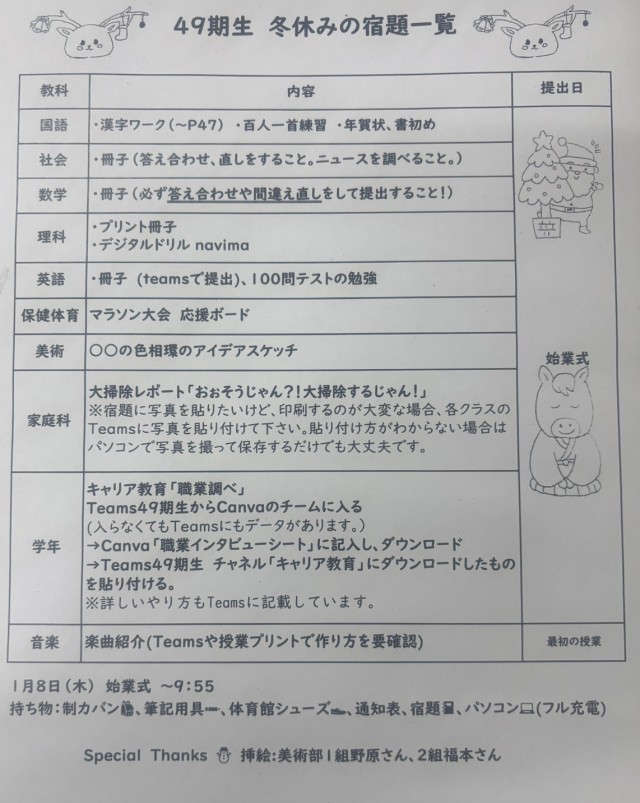 49期生 冬休みの宿題一覧
教科 内容 提出日
国語 ・漢字ワーク(～P47) ・百人一首練習 ・年賀状、書初め
社会 ・冊子(答え合わせ、直しをすること。ニュースを調べること。)
数学 ・冊子(必ず答え合わせや間違え直しをして提出すること!)
理科 ・プリント冊子
・デジタルドリル navima
英語 ・冊子 (teamsで提出)、100問テストの勉強
保健体育 マラソン大会 応援ボード
美術 〇〇の色相環のアイデアスケッチ
始業式
家庭科 大掃除レポート「おぉそうじゃん?!大掃除するじゃん!」
※宿題に写真を貼りたいけど、印刷するのが大変な場合、各クラスの
Teamsに写真を貼り付けて下さい。貼り付け方がわからない場合は
パソコンで写真を撮って保存するだけでも大丈夫です。
学年 キャリア教育「職業調べ」
Teams49期生からCanvaのチームに入る
(入らなくてもTeamsにもデータがあります。)
→Canva「職業インタビューシート」に記入し、ダウンロード
→Teams49期生 チャネル「キャリア教育」にダウンロードしたもの
を貼り付ける。
※詳しいやり方もTeamsに記載しています。
音楽 楽曲紹介(Teamsや授業プリントで作り方を要確認) 最初の授業
1月8日(木) 始業式 ～9:55
持ち物:制カバン、筆記用具、体育館シューズ、通知表、宿題、パソコン(フル充電)
Special Thanks 挿絵:美術部1組野原さん、2組福本さん